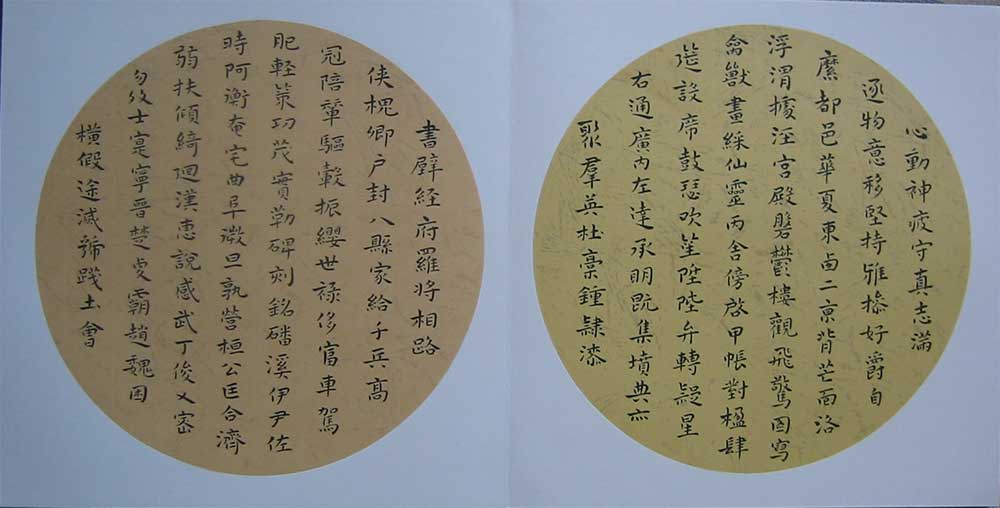 心動神疲守真志滿
逐物意移堅持雅操好爵自
縻都邑華夏東西二京背芒面洛
浮渭據涇宮殿磐鬱樓觀飛驚圖寫
禽獸畫綵仙靈丙舍傍啓甲帳對楹肆
筵設席鼓瑟吹笙陞陛弁轉疑星
右通廣內左達承明既集墳典亦
聚羣英杜稾鍾隸漆
書壁経府羅將相路
侠槐卿户封八縣家給千兵高
冠陪輦驅轂振纓世祿侈富車駕
肥軽策功茂實勒碑刻銘磻溪伊尹佐
時阿衡奄宅曲阜微旦孰營桓公匡合濟
弱扶傾綺迴漢惠說感武丁俊乂密
勿多士寔寧晉楚更霸趙魏困
橫假途滅虢踐土會